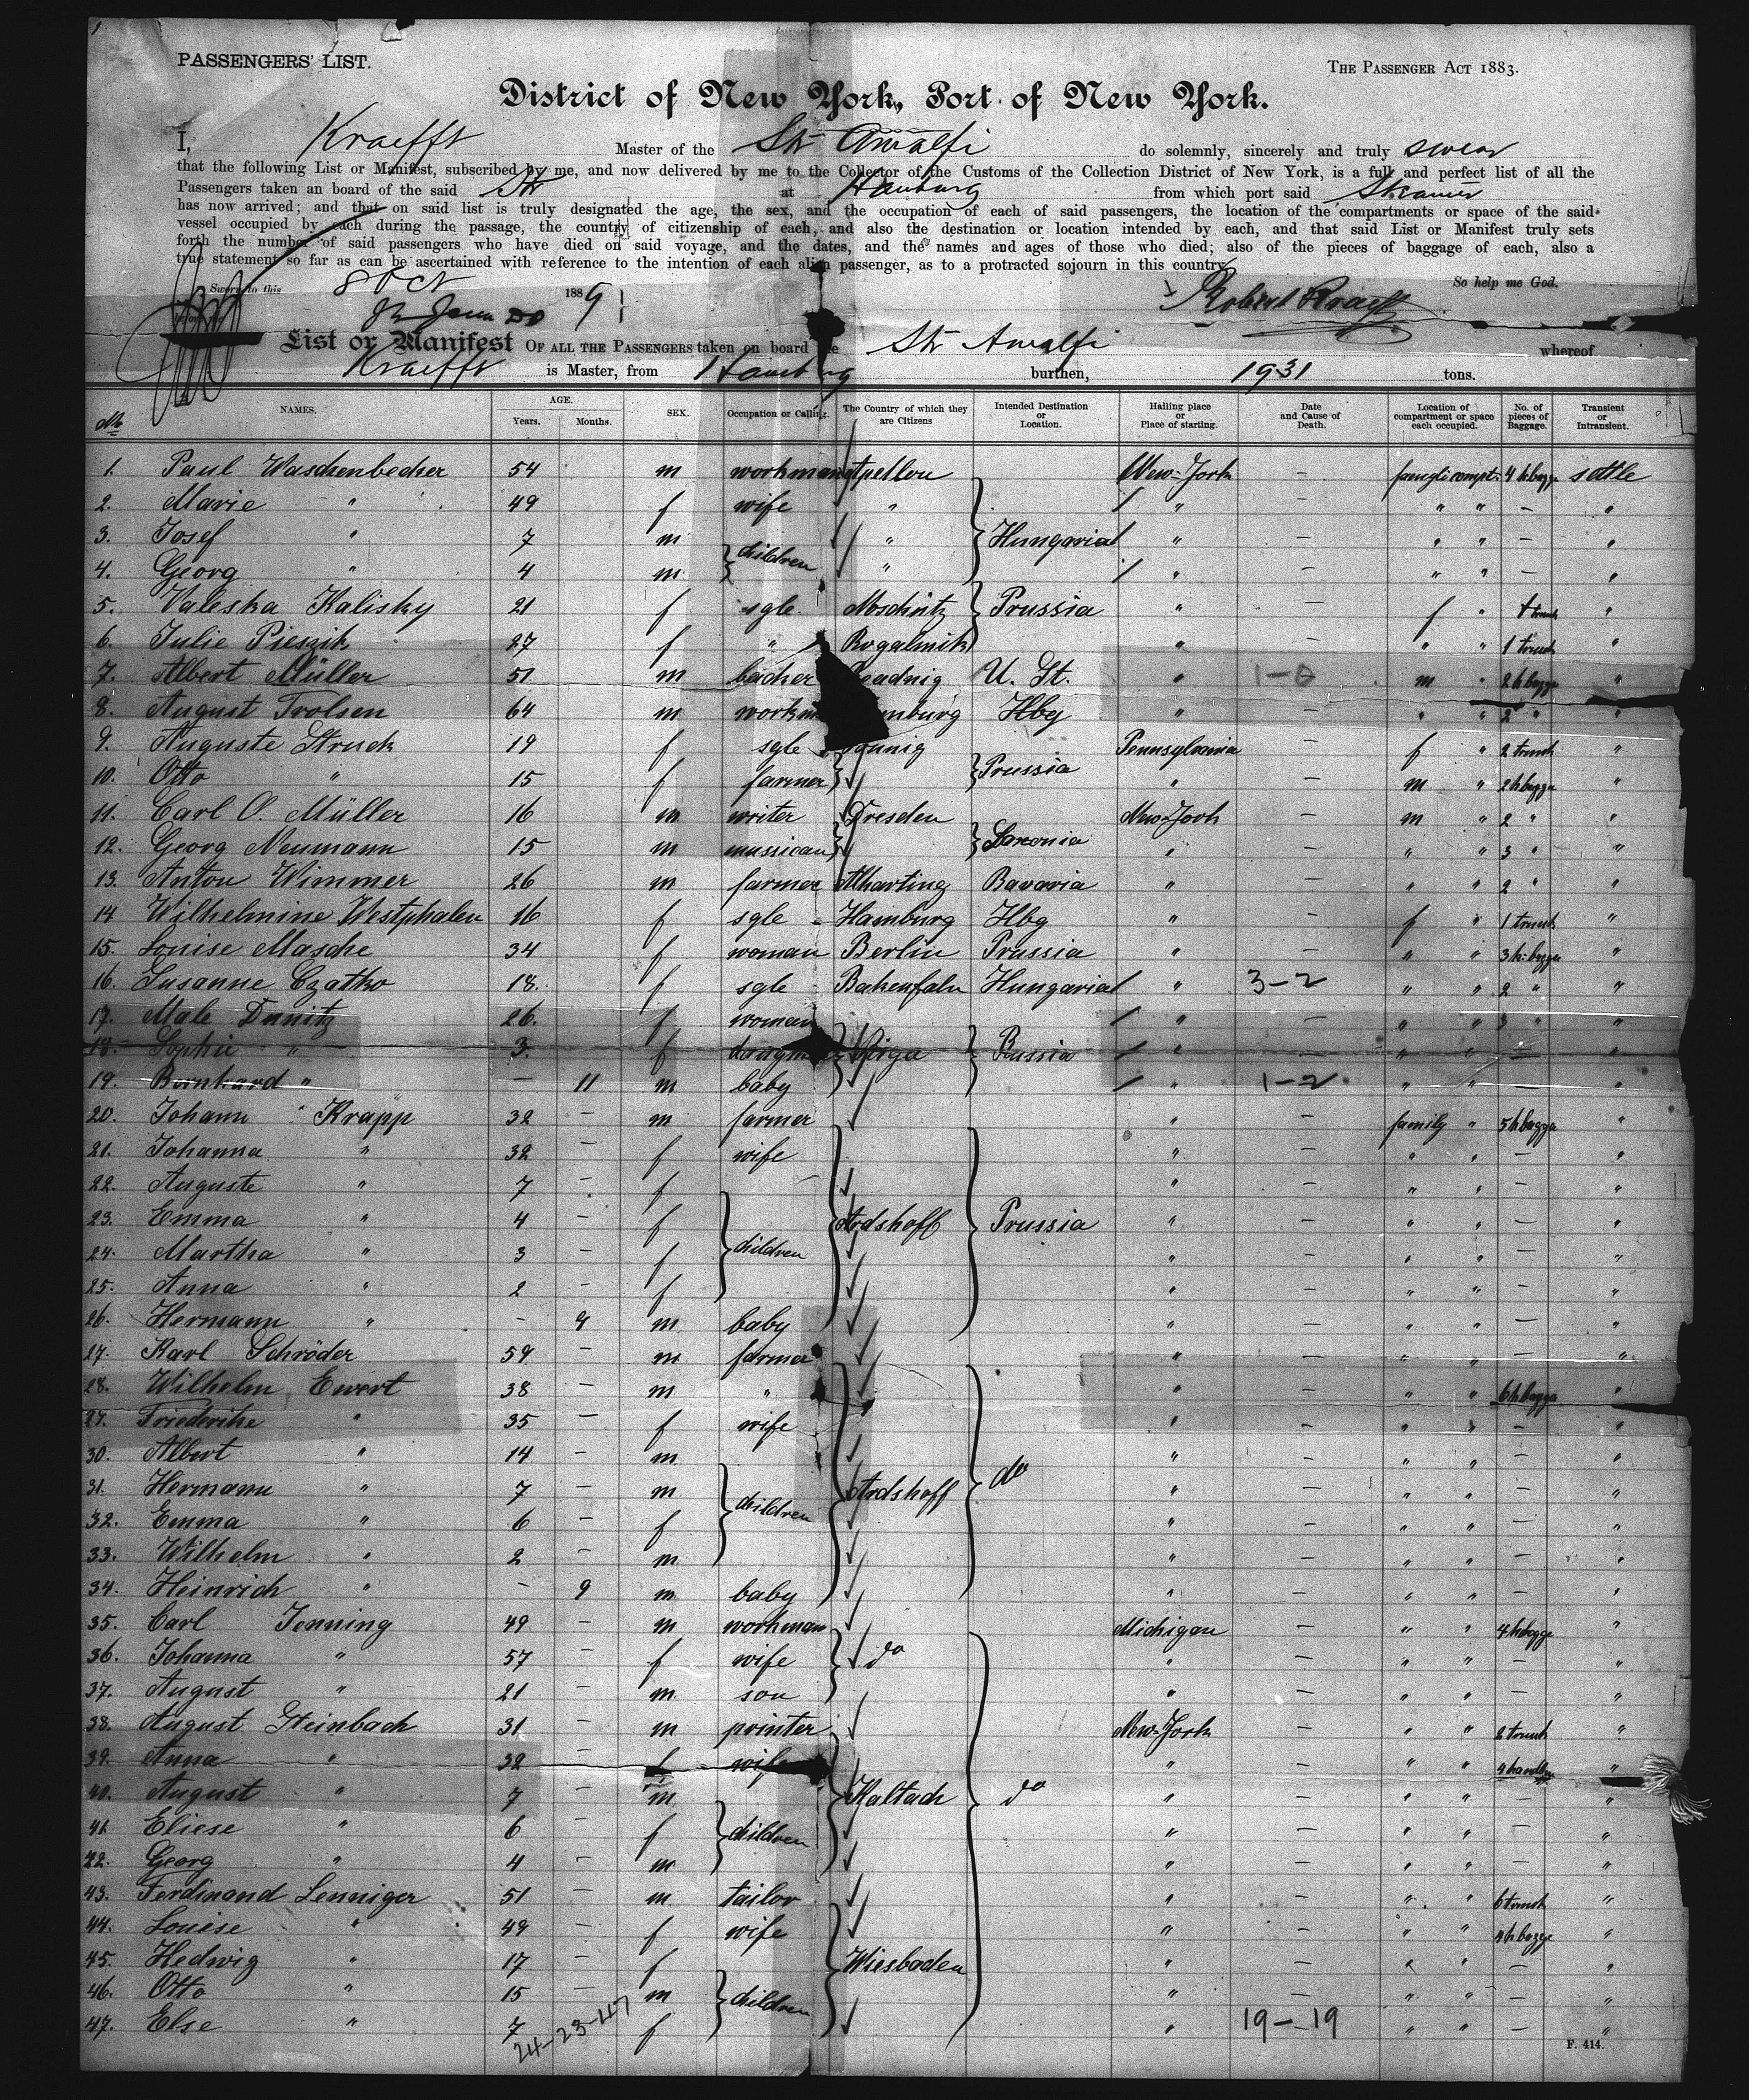 PASSENGERS' LIST.
THE PASSENGER ACT 1883.
District of New York, Port of New York.
I, Kraefft Master of the Str Amalfi do solemnly, sincerely and truly swear
that the following List or Manifest, subscribed by me, and now delivered by me to the Collector of the Customs of the Collection District of New York, is a full and perfect list of all the
Passengers taken on board of the said Str at Hamburg from which port said Steamer
has now arrived; and that on said list is truly designated the age, the sex, and the occupation of each of said passengers, the location of the compartments or space of the said
vessel occupied by each during the passage, the country of citizenship of each, and also the destination or location intended by each, and that said List or Manifest truly sets
forth the number of said passengers who have died on said voyage, and the dates, and the names and ages of those who died; also of the pieces of baggage of each, also a
true statement so far as can be ascertained with reference to the intention of each alien passenger, as to a protracted sojourn in this country.
So help me God.
Sworn to this 8 Oct 1889
Robert Kraefft
List or Manifest OF ALL THE PASSENGERS taken on board the Str Amalfi whereof
Kraefft is Master, from Hamburg burthen, 1931 tons.
No NAMES. AGE. Years. Months. SEX. Occupation or Calling. The Country of which they are Citizens Intended Destination or Location. Hailing place or Place of starting. Date and Cause of Death. Location of compartment or space each occupied. No. of pieces of Baggage. Transient or Intransient.
1. Paul Waschenbecher 54 m workman New-York — compt. 4 h.bagge settle
2. Marie " 49 f wife " " — " " — "
3. Josef " 7 m children " Hungaria " — " " — "
4. Georg " 4 m " " — " " — "
5. Valeska Kalisky 21 f sgle Moschütz Prussia " — f " 1 trunk "
6. Julie Pieszik 27 f " Rogalmik " — " " 1 trunk "
7. Albert Müller 51 m bacher U. St. " 1-0 m " 2 h.bagge "
8. August Trolsen 64 m workm Hbg " — " " 2 " "
9. Auguste Struck 19 f sgle Pennsylvania — f " 2 trunk "
10. Otto " 15 f farmer Prussia " — m " 2 h.bagge "
11. Carl O. Müller 16 m writer Dresden New-York — m " 2 " "
12. Georg Neumann 15 m mussican Saxonia " — " " 3 " "
13. Anton Wimmer 26 m farmer Alharting Bavaria " — " " 2 " "
14 Wilhelmine Westphalen 16 f sgle Hamburg Hbg " — f " 1 trunk "
15. Louise Masche 34 f woman Berlin Prussia " — " " 3 h.bagge "
16. Susanne Czatko 18. f sgle Bakenfalu Hungaria " 3-2 " " 2 " "
17. Male Dunitz 26. f woman " — " " 3 " "
18. Sophie " 3. f Riga Russia " — " " — "
19. Bernhard " — 11 m baby " 1-2 " " — "
20. Johann Krapp 32 — m farmer " — family " 5 h.bagge "
21. Johanna " 32 — f wife " — " " — "
22. Auguste " 7 — f " — " " — "
23. Emma " 4 — f Ardshoff Prussia " — " " — "
24. Martha " 3 — f children " — " " — "
25. Anna " 2 — f " — " " — "
26. Hermann " — 9 m baby " — " " — "
27. Karl Schröder 59 — m farmer " — " " — "
28. Wilhelm Ewert 38 — m " " — " " 6 h.bagge "
29. Friederike " 35 — f wife " — " " — "
30. Albert " 14 — m " — " " — "
31. Hermann " 7 — m Ardshoff do " — " " — "
32. Emma " 6 — f children " — " " — "
33. Wilhelm " 2 — m " — " " — "
34. Heinrich " — 9 m baby " — " " — "
35. Carl Jenning 49 — m workman Michigan — " " 4 h.bagge "
36. Johanna " 57 f wife do " — " " — "
37. August " 21 — m son " — " " — "
38. August Steinbach 31 — m printer New-York — " " 2 trunk "
39. Anna " 32 — f wife " — " " "
40. August " 7 — m Kaltach do " — " " — "
41. Eliese " 6 — f children " — " " — "
42. Georg " 4 — m " — " " — "
43. Ferdinand Lenniger 51 — m tailor " — " " 6 trunk "
44. Louise " 49 — f wife " — " " 4 h.bagge "
45. Hedwig " 17 — f Wiesbaden " — " " — "
46. Otto " 15 — m children " — " " — "
47. Else " 7 f " 19-19 " " — "
24-23-47
F. 414.